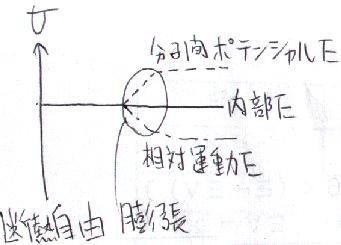 U
分子間ポテンシャルE
内部E
相対運動E
断熱自由膨張